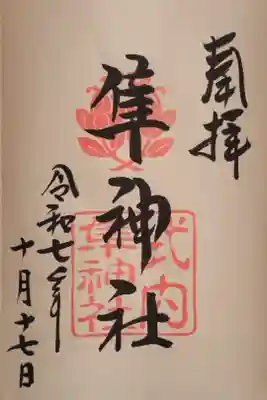 奉拝
隼神社
式内
隼神社
令和七年
十月十七日